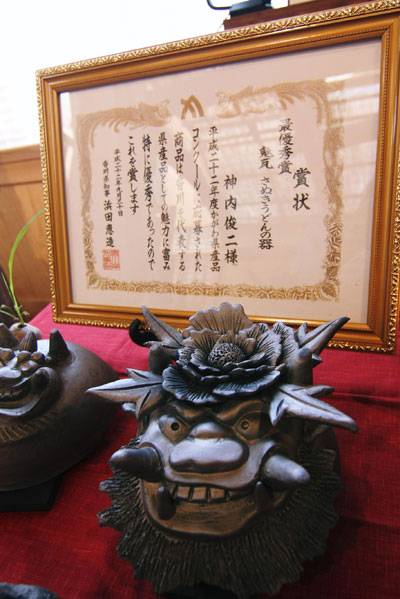 賞状
最優秀賞
鬼瓦 さぬきうどんの器
神内俊二様
平成二十二年度かがわ県産品
コンクールに応募された
商品は香川県を代表する
県産品としての魅力に富み
特に優秀であったので
これを賞します
平成二十二年九月二十日
香川県知事 浜田恵造